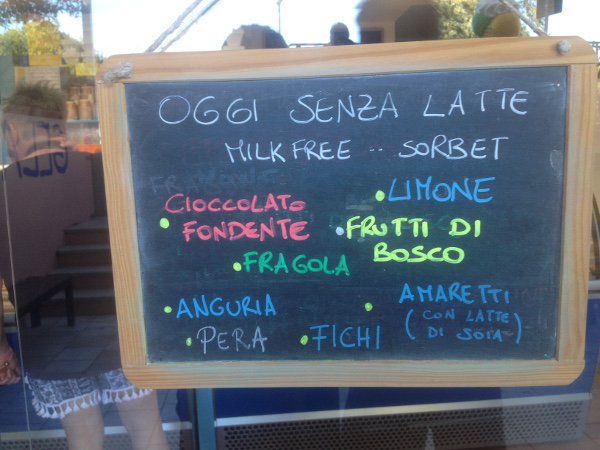 OGGI SENZA LATTE
MILK FREE .. SORBET
CIOCCOLATO
FONDENTE
LIMONE
FRUTTI DI
BOSCO
FRAGOLA
ANGURIA
AMARETTI
(CON LATTE
DI SOIA)
PERA
FICHI